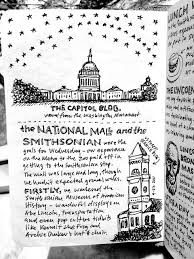 THE CAPITOL BLDG.
view from the Washington Monument
the NATIONAL MALL and the
SMITHSONIAN were the
goals for Wednesday - our experience
on the Metro to the Zoo paid off in
getting to the Smithsonian stop.
The Mall was large and long, though
we hadn't expected gravel walks.
FIRSTLY, we wandered the
Smithsonian Museum of American
History - wonderful displays on
Abe Lincoln, transportation
and even pop culture things
like Kermit the Frog and
Archie Bunker's hat & chair.